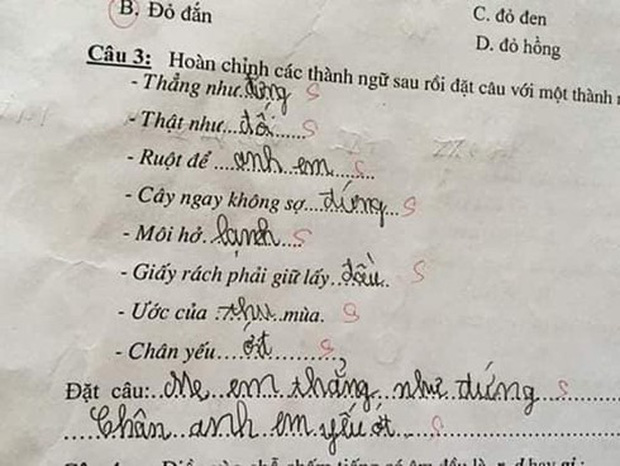 B. Đỏ đắn
C. đỏ đen
D. đỏ hồng
Câu 3: Hoàn chỉnh các thành ngữ sau rồi đặt câu với một thành
- Thẳng như..đứng S
- Thật như...đối...... S
- Ruột để ....anh em...... S
- Cây ngay không sợ....đứng... S
- Môi hở. lạnh .... S
- Giấy rách phải giữ lấy..đầu. S
- Ước của .thu..mùa. S
- Chân yếu....ớt.......... S
Đặt câu:..Mẹ..em thẳng như đứng.... S
.....Chân anh em yếu ớt.... S